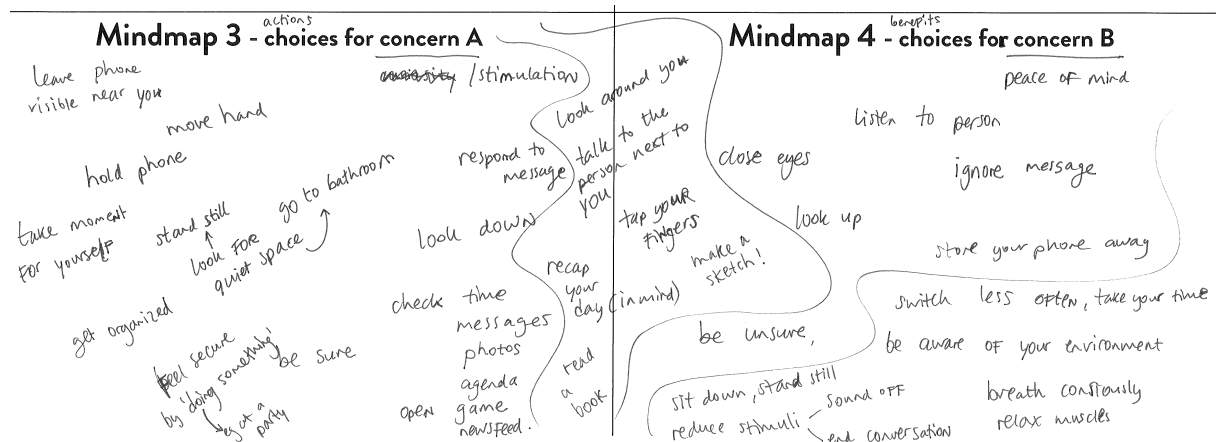 actions
Mindmap 3 - choices for concern A
/stimulation
leave phone
visible near you
move hand
hold phone
take moment
For yourself
stand still
look For
quiet space
go to bathroom
get organized
feel secure
by 'doing something'
eg at a
party
be sure
respond to
message
look down
check time
messages
photos
agenda
open game
newsfeed.
look around you
talk to the
person next to
you
tap your
fingers
make a
sketch!
recap
your
day (in mind)
read
a
book
benefits
Mindmap 4 - choices for concern B
peace of mind
listen to person
close eyes
ignore message
look up
store your phone away
switch less often, take your time
be unsure,
be aware of your environment
sit down, stand still
reduce stimuli
sound off
end conversation
breath consiously
relax muscles